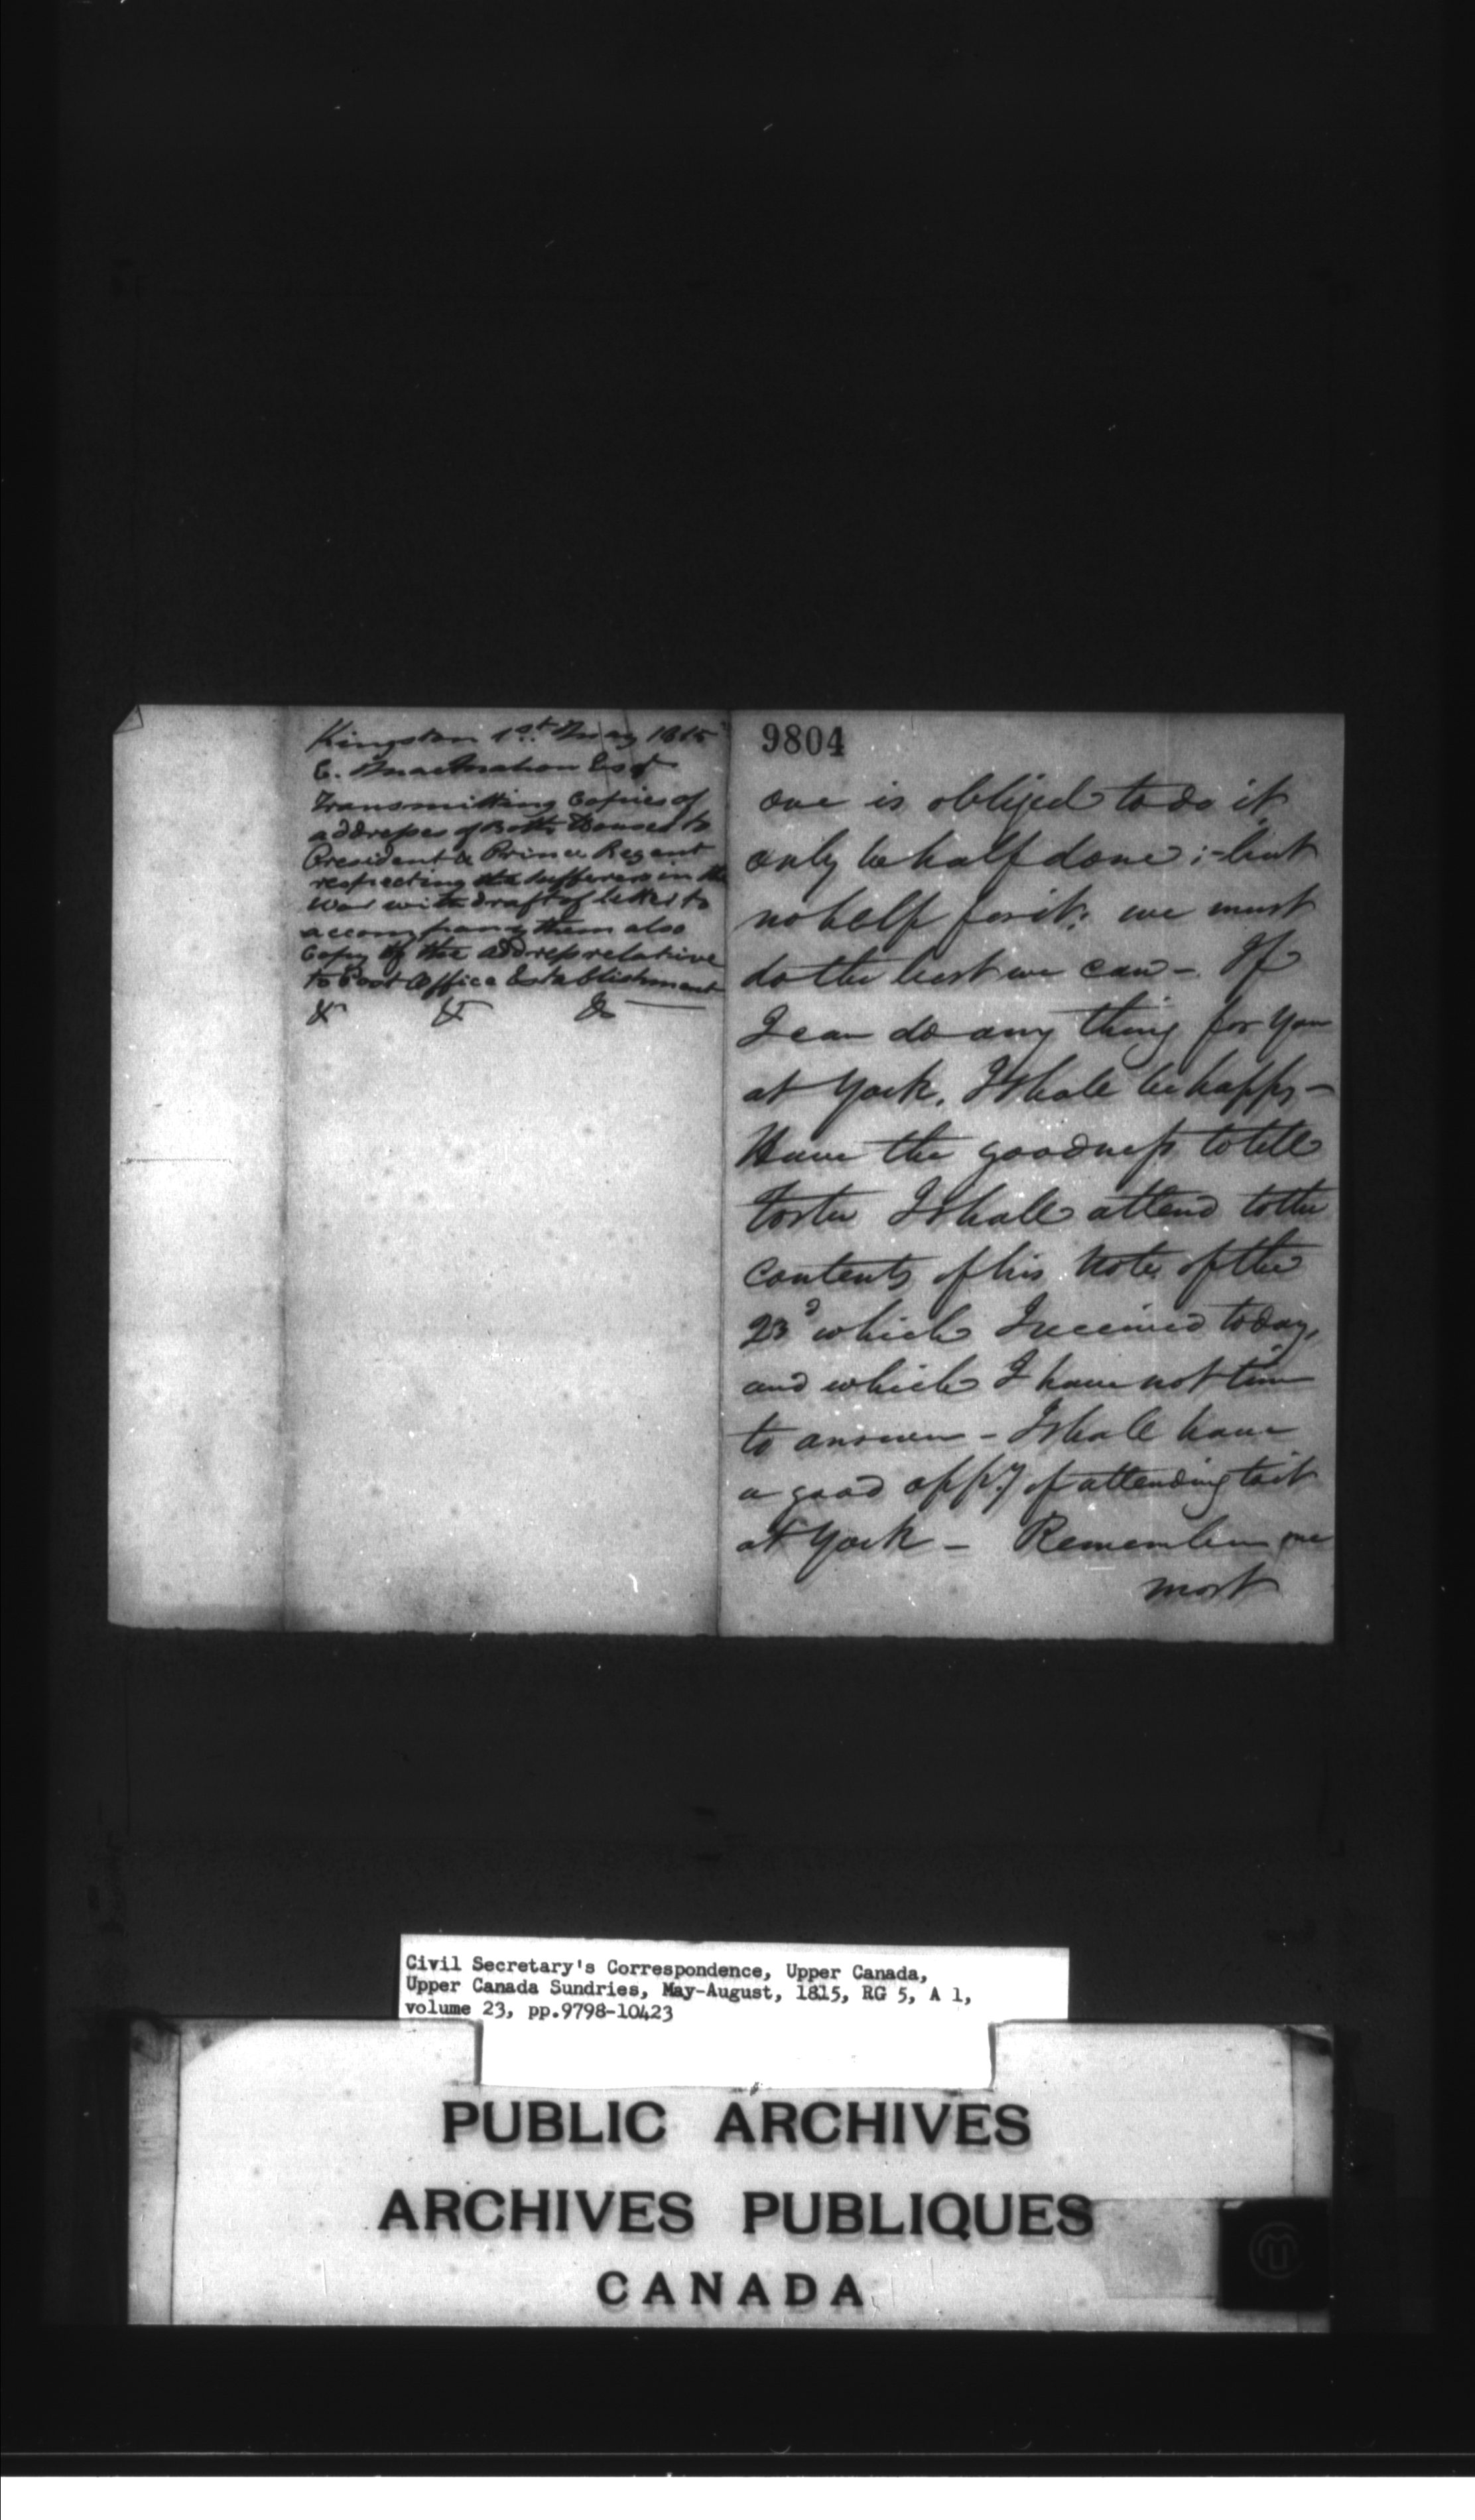 Kingston 1st. May 1815
E. MacMahon Esqr
Transmitting Copies of
addresses of Both Houses to
President & Prince Regent
respecting the sufferers in the
War with draft of letter to
accompany them also
Copy of the address relative
to Post Office Establishment
& & &
9804
one is obliged to do it
only be half done ;- but
no help for it: we must
do the best we can -. If
I can do any thing for you
at York, I shall be happy -
Have the goodness to tell
Foster I shall attend to the
contents of his Note of the
23d which I received today,
and which I have not time
to answer - I shall have
a good oppy. of attending to it
at York - Remember me
most
Civil Secretary's Correspondence, Upper Canada,
Upper Canada Sundries, May-August, 1815, RG 5, A 1,
volume 23, pp.9798-10423
PUBLIC ARCHIVES
ARCHIVES PUBLIQUES
CANADA